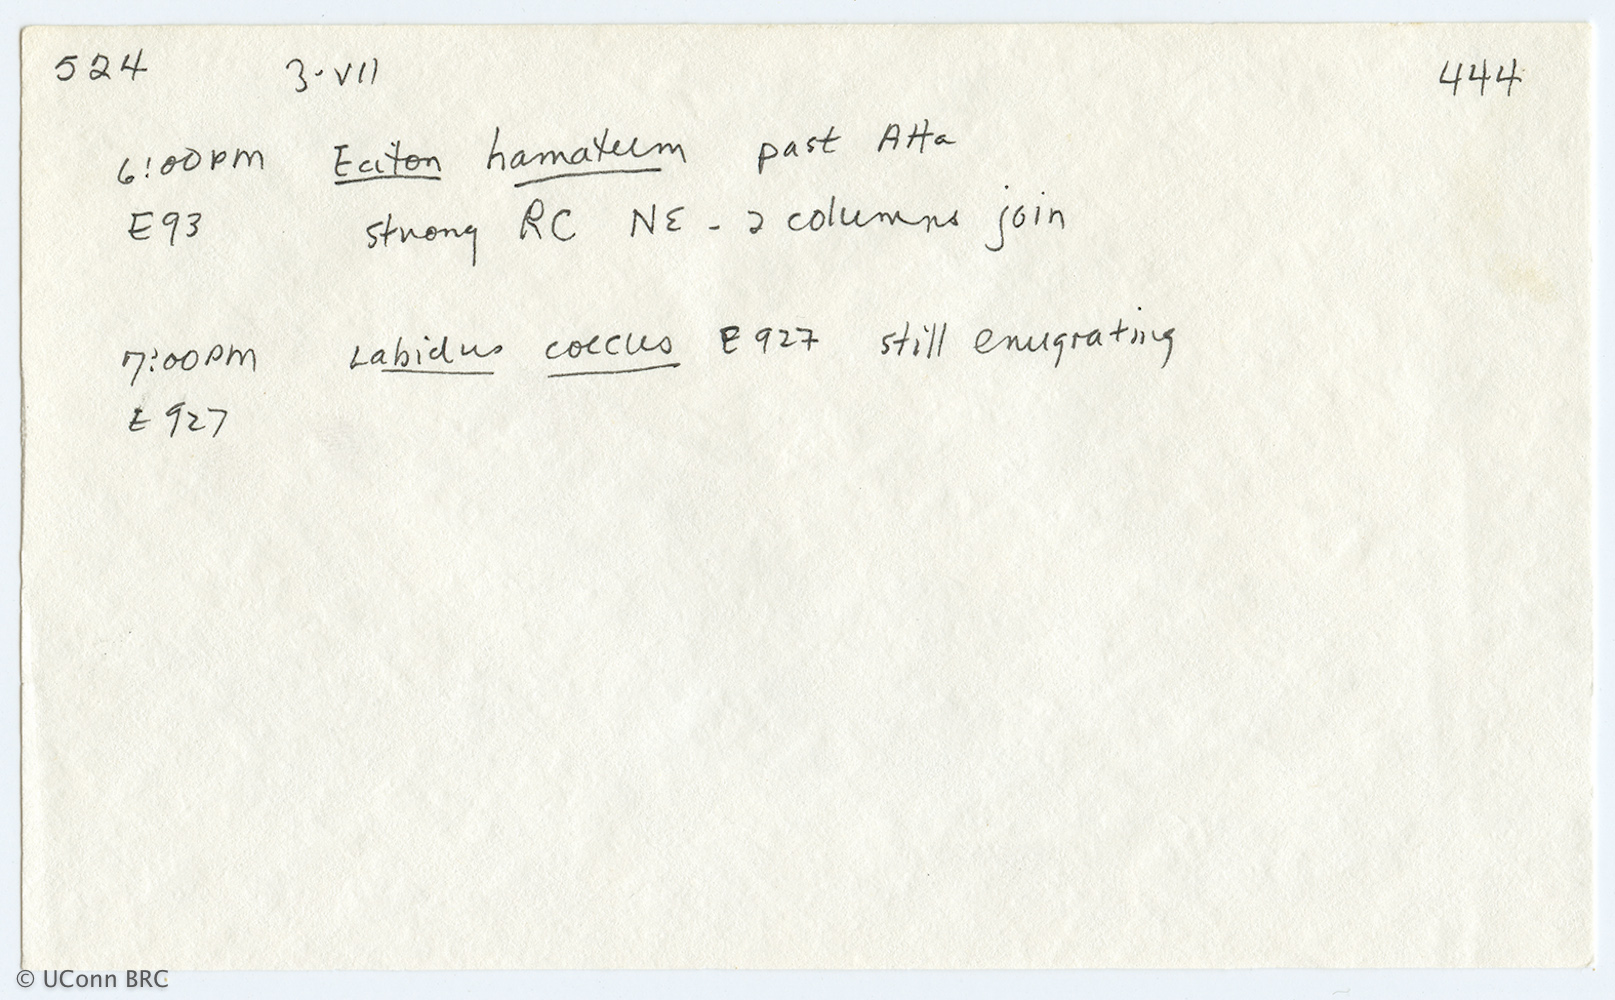 524 3·VII 444
6:00PM Eciton hamatum past Atta
E93 strong RC NE - 2 columns join
7:00PM Labidus coecus E927 still emigrating
E927
© UConn BRC